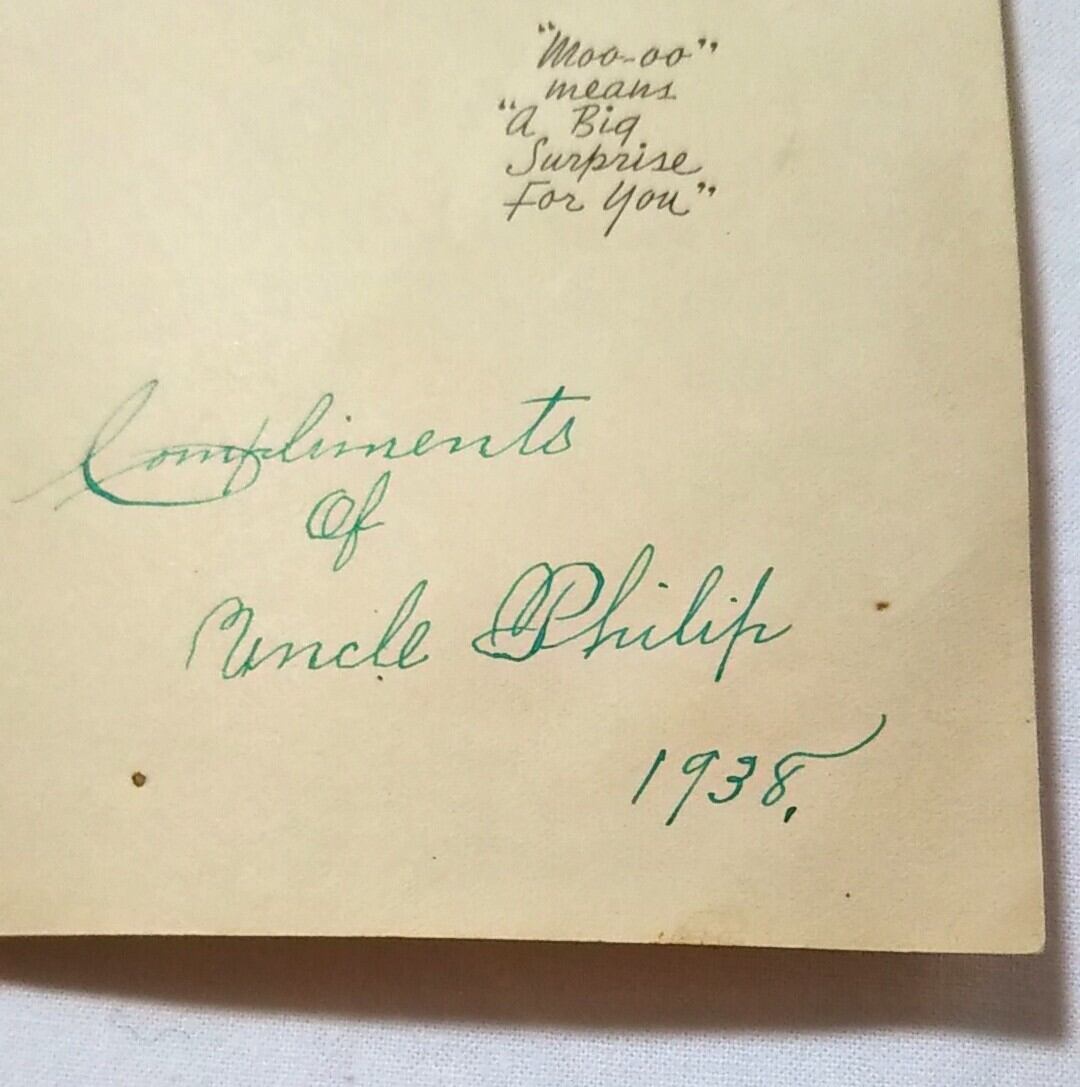 "Moo-oo"
means
"A Big
Surprise
For You"
Compliments
Of
Uncle Philip
1938.